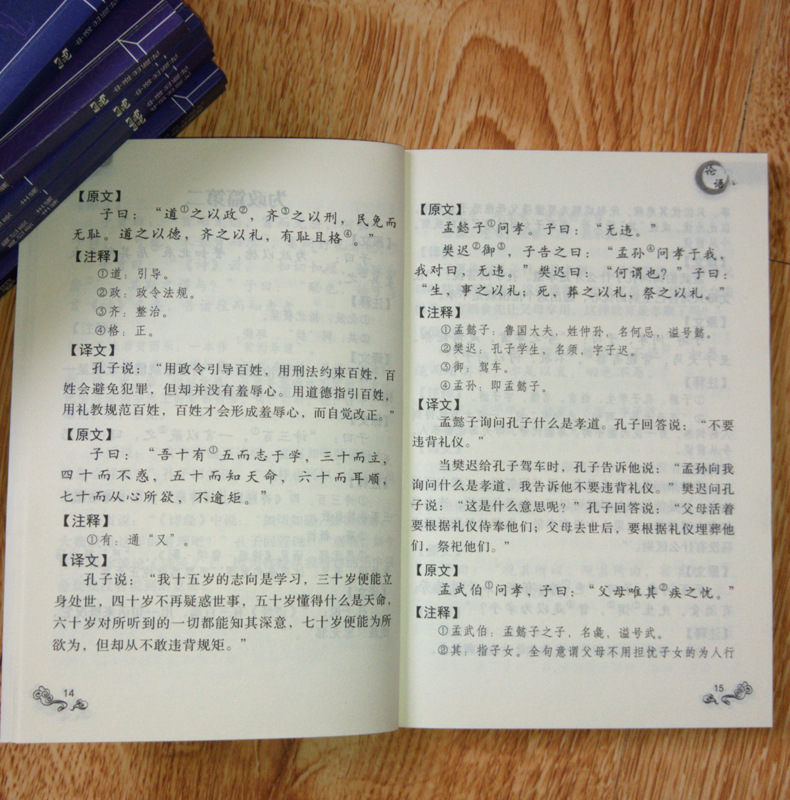 【原文】
子曰：“道①之以政②，齐③之以刑，民免而
无耻。道之以德，齐之以礼，有耻且格④。”
【注释】
①道：引导。
②政：政令法规。
③齐：整治。
④格：正。
【译文】
孔子说：“用政令引导百姓，用刑法约束百姓，百
姓会避免犯罪，但却并没有羞辱心。用道德指引百姓，
用礼教规范百姓，百姓才会形成羞辱心，而自觉改正。”
【原文】
子曰：“吾十有①五而志于学，三十而立，
四十而不惑，五十而知天命，六十而耳顺，
七十而从心所欲，不逾矩。”
【注释】
①有：通“又”。
【译文】
孔子说：“我十五岁的志向是学习，三十岁便能立
身处世，四十岁不再疑惑世事，五十岁懂得什么是天命，
六十岁对所听到的一切都能知其深意，七十岁便能为所
欲为，但却从不敢违背规矩。”
14
论语
【原文】
孟懿子①问孝。子曰：“无违。”
樊迟②御③，子告之曰：“孟孙④问孝于我，
我对曰，无违。”樊迟曰：“何谓也？”子曰：
“生，事之以礼；死，葬之以礼，祭之以礼。”
【注释】
①孟懿子：鲁国大夫，姓仲孙，名何忌，谥号懿。
②樊迟：孔子学生，名须，字子迟。
③御：驾车。
④孟孙：即孟懿子。
【译文】
孟懿子询问孔子什么是孝道。孔子回答说：“不要
违背礼仪。”
当樊迟给孔子驾车时，孔子告诉他说：“孟孙向我
询问什么是孝道，我告诉他不要违背礼仪。”樊迟问孔
子说：“这是什么意思呢？”孔子回答说：“父母活着
要根据礼仪侍奉他们；父母去世后，要根据礼仪埋葬他
们，祭祀他们。”
【原文】
孟武伯①问孝，子曰：“父母唯其②疾之忧。”
【注释】
①孟武伯：孟懿子之子，名彘，谥号武。
②其：指子女。全句意谓父母不用担忧子女的为人行
15